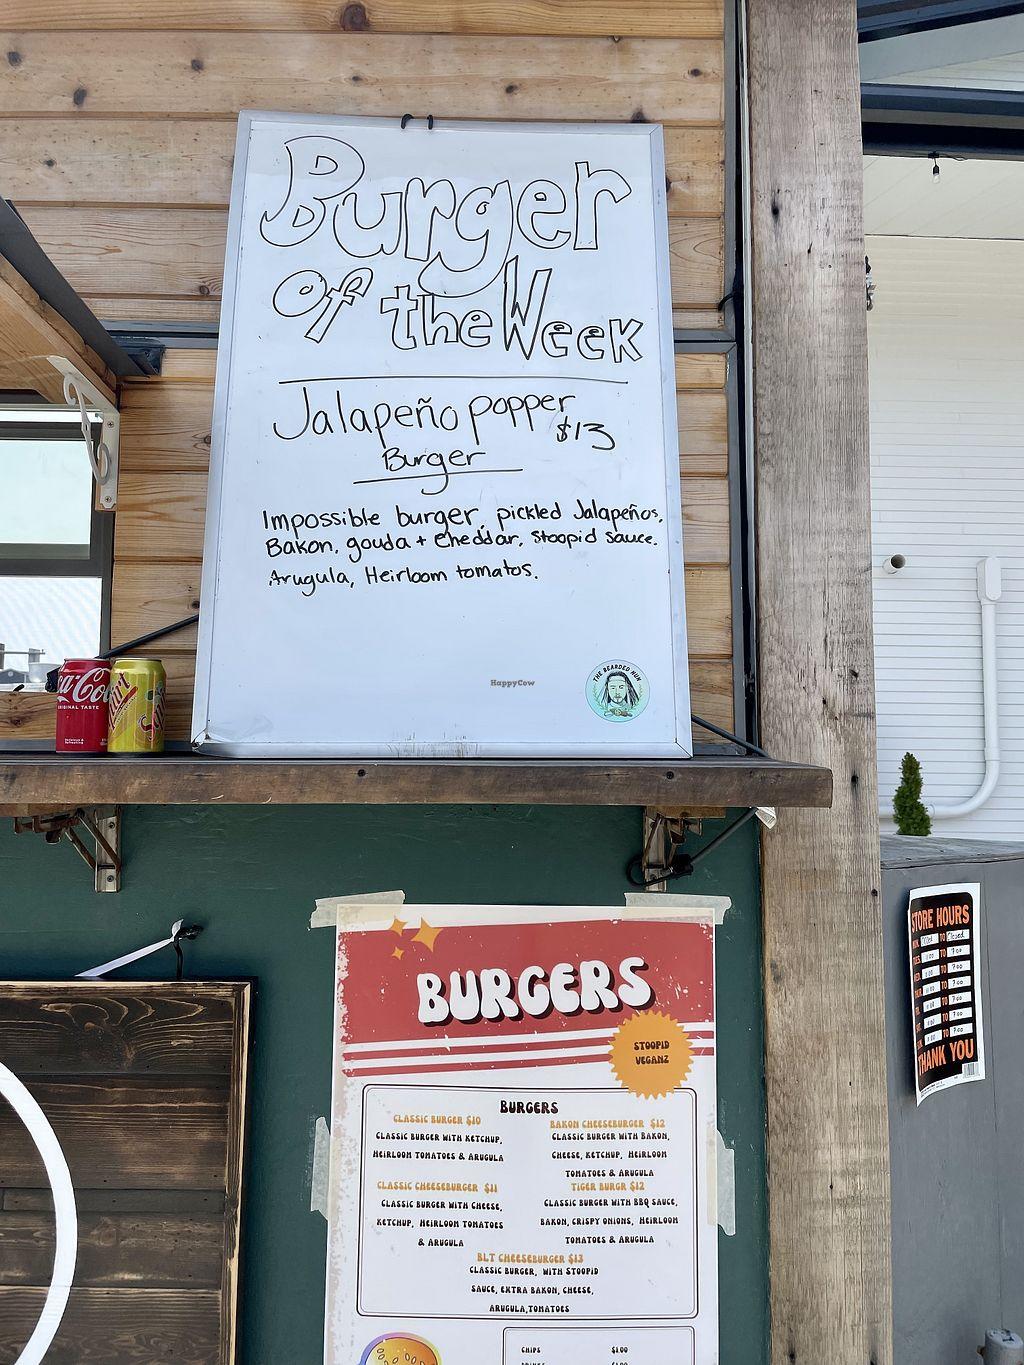 Burger
of the Week
Jalapeño popper
$13
Burger
Impossible burger, pickled Jalapeños,
Bakon, gouda + cheddar, Stoopid sauce.
Arugula, Heirloom tomatos.
Coca-Cola
ORIGINAL TASTE
HappyCow
THE BEARDED NUN
BURGERS
STOOPID
VEGANZ
BURGERS
CLASSIC BURGER $10
CLASSIC BURGER WITH KETCHUP,
HEIRLOOM TOMATOES & ARUGULA
BAKON CHEESEBURGER $12
CLASSIC BURGER WITH BAKON,
CHEESE, KETCHUP, HEIRLOOM
TOMATOES & ARUGULA
CLASSIC CHEESEBURGER $11
CLASSIC BURGER WITH CHEESE,
KETCHUP, HEIRLOOM TOMATOES
& ARUGULA
TIGER BURGR $12
CLASSIC BURGER WITH BBQ SAUCE,
BAKON, CRISPY ONIONS, HEIRLOOM
TOMATOES & ARUGULA
BLT CHEESEBURGER $13
CLASSIC BURGER, WITH STOOPID
SAUCE, EXTRA BAKON, CHEESE,
ARUGULA,TOMATOES
CHIPS $1.00
STORE HOURS
MON. Closed TO Closed
TUES. 11:00 TO 7:00
WED. 11:00 TO 7:00
11:00 TO 7:00
11:00 TO 7:00
11:00 TO 7:00
SUN. 11:00 TO 7:00
THANK YOU